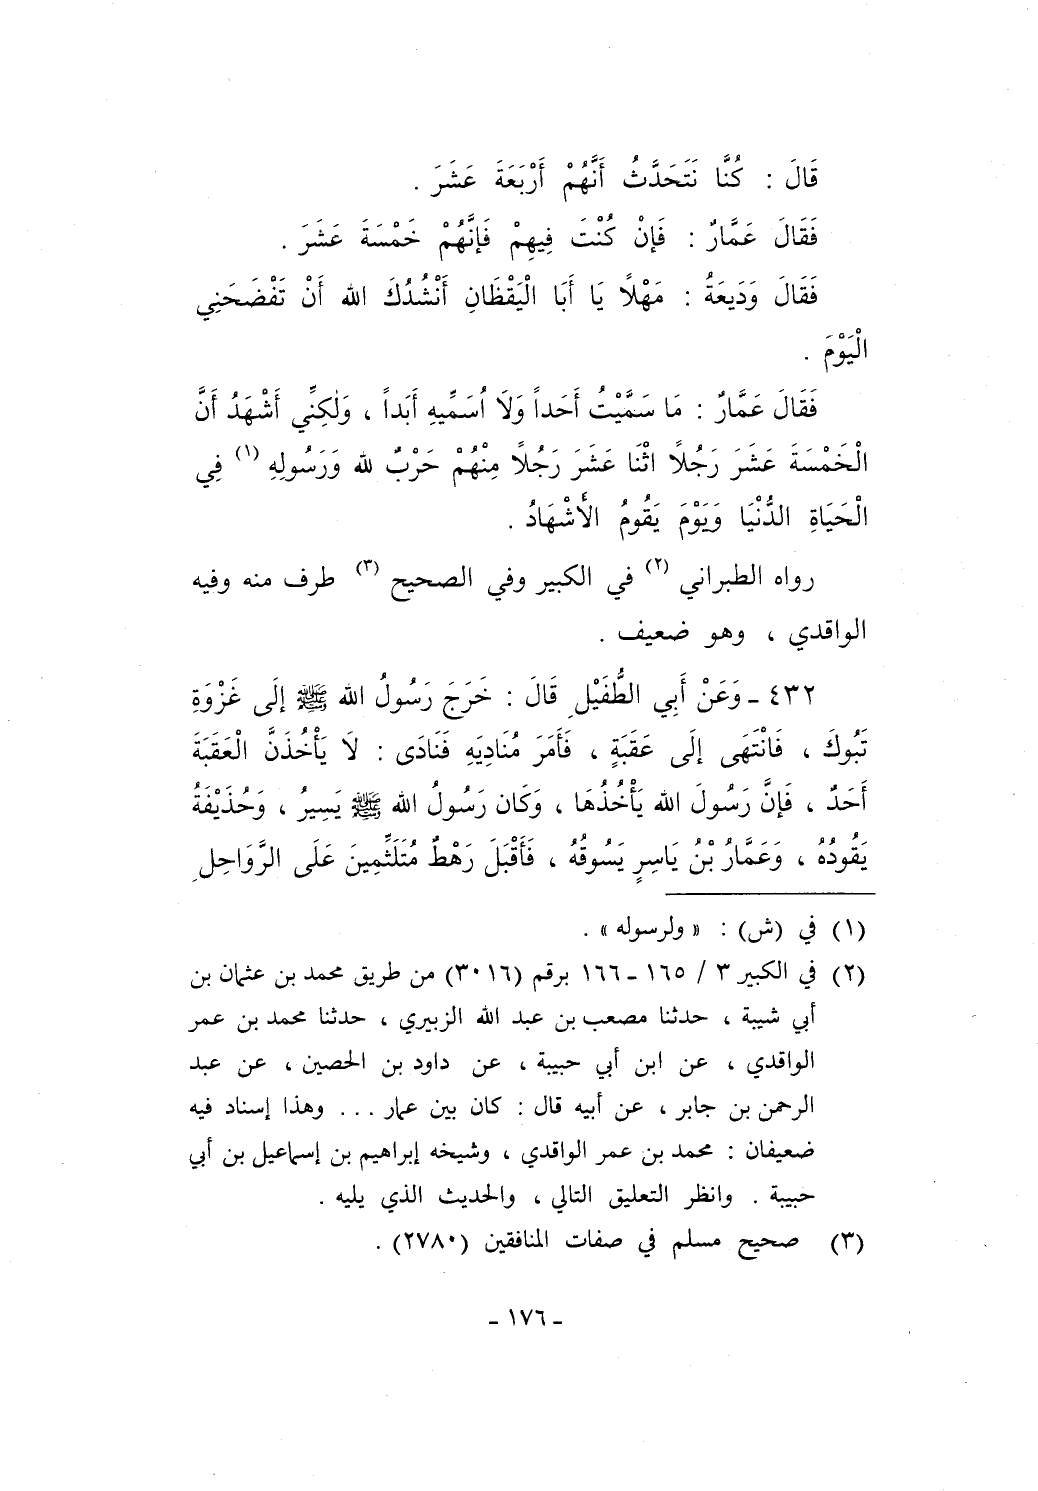 قَالَ : كُنَّا نَتَحَدَّثُ أَنَّهُمْ أَرْبَعَةَ عَشَرَ .
فَقَالَ عَمَّارٌ : فَإِنْ كُنْتَ فِيهِمْ فَإِنَّهُمْ خَمْسَةَ عَشَرَ .
فَقَالَ وَدَيعَةُ : مَهْلًا يَا أَبَا الْيَقْظَانِ أَنْشُدُكَ الله أَنْ تَفْضَحَنِي
الْيَوْمَ .
فَقَالَ عَمَّارٌ : مَا سَمَّيْتُ أَحَداً وَلَا أُسَمِّيهِ أَبَداً ، وَلٰكِنِّي أَشْهَدُ أَنَّ
الْخَمْسَةَ عَشَرَ رَجُلًا اثْنَا عَشَرَ رَجُلًا مِنْهُمْ حَرْبٌ لله وَرَسُولِهِ (١) فِي
الْحَيَاةِ الدُّنْيَا وَيَوْمَ يَقُومُ الأَشْهَادُ .
رواه الطبراني (٢) في الكبير وفي الصحيح (٣) طرف منه وفيه
الواقدي ، وهو ضعيف .
٤٣٢ - وَعَنْ أَبِي الطُّفَيْلِ قَالَ : خَرَجَ رَسُولُ الله ﷺ إِلَى غَزْوَةِ
تَبُوكَ ، فَانْتَهَى إِلَى عَقَبَةٍ ، فَأَمَرَ مُنَادِيَهِ فَنَادَى : لَا يَأْخُذَنَّ الْعَقَبَةَ
أَحَدٌ ، فَإِنَّ رَسُولَ الله يَأْخُذُهَا ، وَكَان رَسُولُ الله ﷺ يَسِيرُ ، وَحُذَيْفَةُ
يَقُودُهُ ، وَعَمَّارُ بْنُ يَاسِرٍ يَسُوقُهُ ، فَأَقْبَلَ رَهْطٌ مُتَلَثِّمِينَ عَلَى الرَّوَاحِلِ
(١) في (ش) : « ولرسوله » .
(٢) في الكبير ٣ / ١٦٥ - ١٦٦ برقم (٣٠١٦) من طريق محمد بن عثمان بن
أبي شيبة ، حدثنا مصعب بن عبد الله الزبيري ، حدثنا محمد بن عمر
الواقدي ، عن ابن أبي حبيبة ، عن داود بن الحصين ، عن عبد
الرحمن بن جابر ، عن أبيه قال : كان بين عمار ... وهذا إسناد فيه
ضعيفان : محمد بن عمر الواقدي ، وشيخه إبراهيم بن إسماعيل بن أبي
حبيبة . وانظر التعليق التالي ، والحديث الذي يليه .
(٣) صحيح مسلم في صفات المنافقين (٢٧٨٠) .
- ١٧٦ -